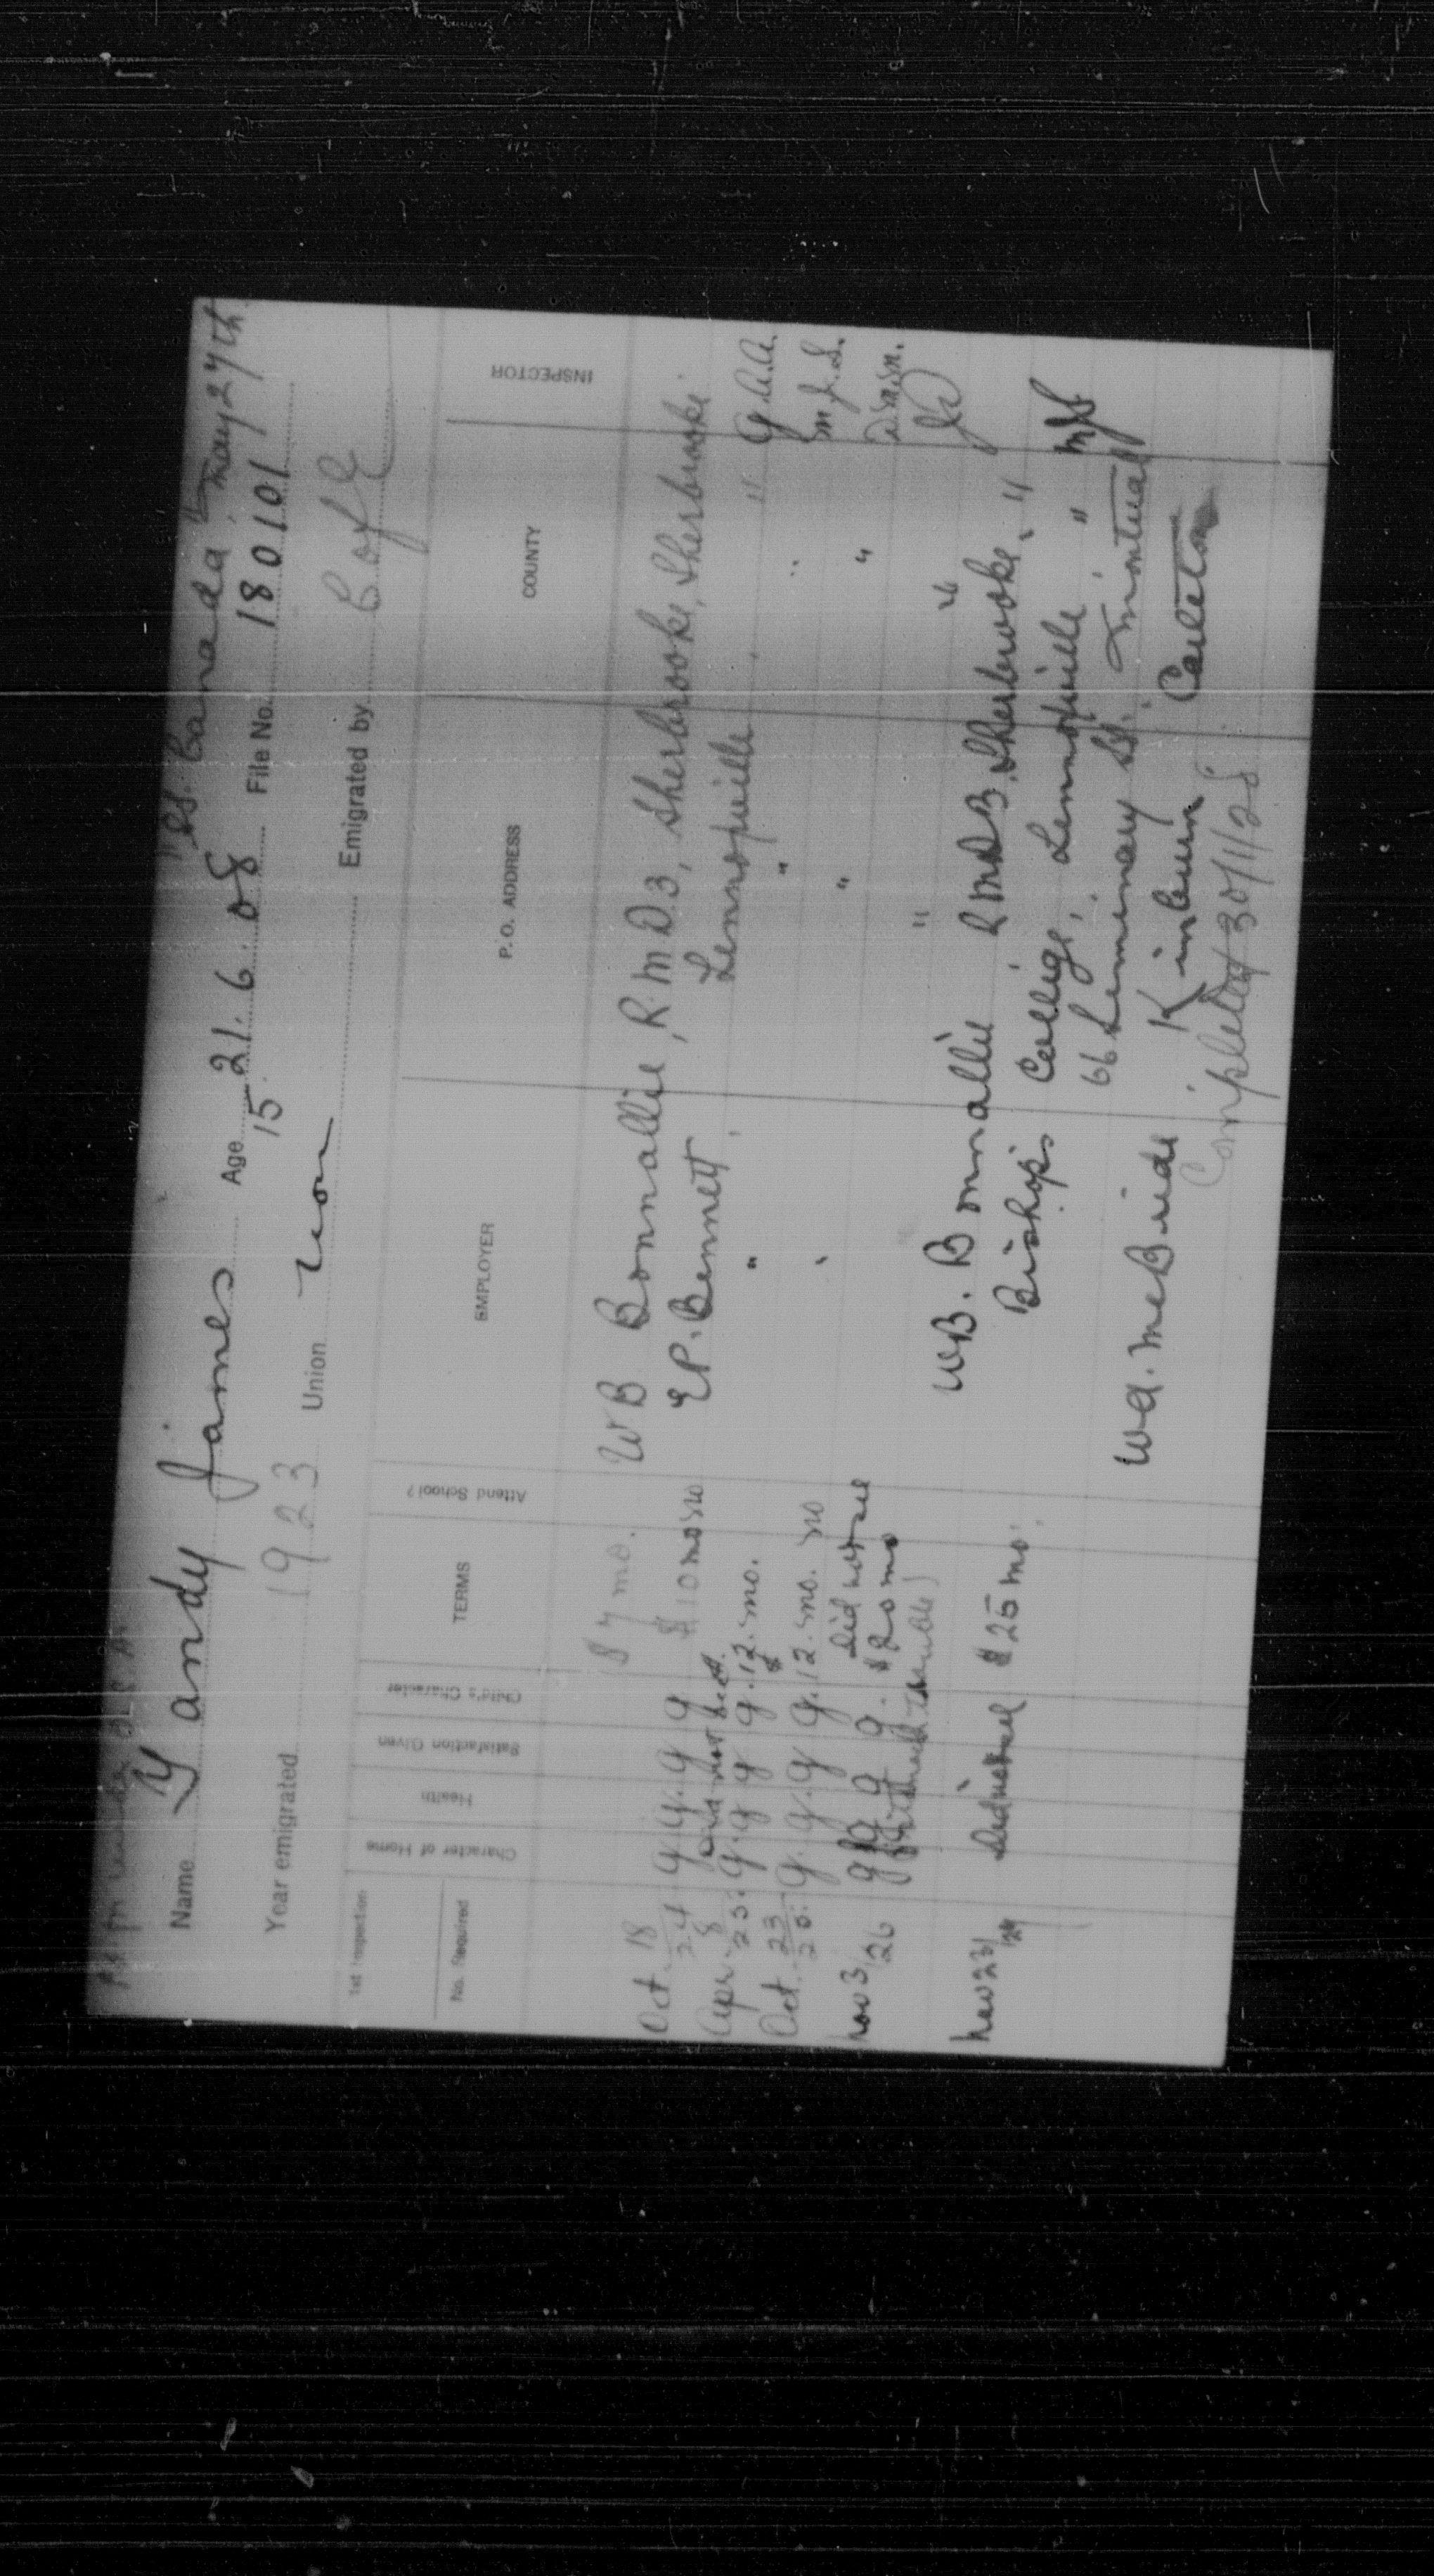 "SS. Canada" May 27th
Name Yandy James Age 21.6.08 File No. 180101
15
Year emigrated 1923 Union non Emigrated by C of E
1st Inspection
No. Required
Character of Home
Health
Satisfaction Given
Child's Character
TERMS
Attend School?
EMPLOYER
P.O. ADDRESS
COUNTY
INSPECTOR
$7 mo. W B Bonnallie, R.M.D.3, Sherbrooke, Sherbrooke.
Oct 18/24 g g. g g $10 mo no E.P. Bennett, Lennoxville. " G.A.A.
Apr 8/25 g. g g g. $12. mo. " " " M.J.S.
Oct. 23/25. g. g. g g. $12. mo. no " " " D.M.M.
Did not see
Nov 3/26 g g g g. $20 mo " "
W.B. Bonnallie RMD3, Sherbrooke, "
Nov 23/27 Did not see $25 mo. Bishop's College, Lennoxville "
66 St. Montreal
W.A. McBride Kinburn Carleton
Completed 30/1/28